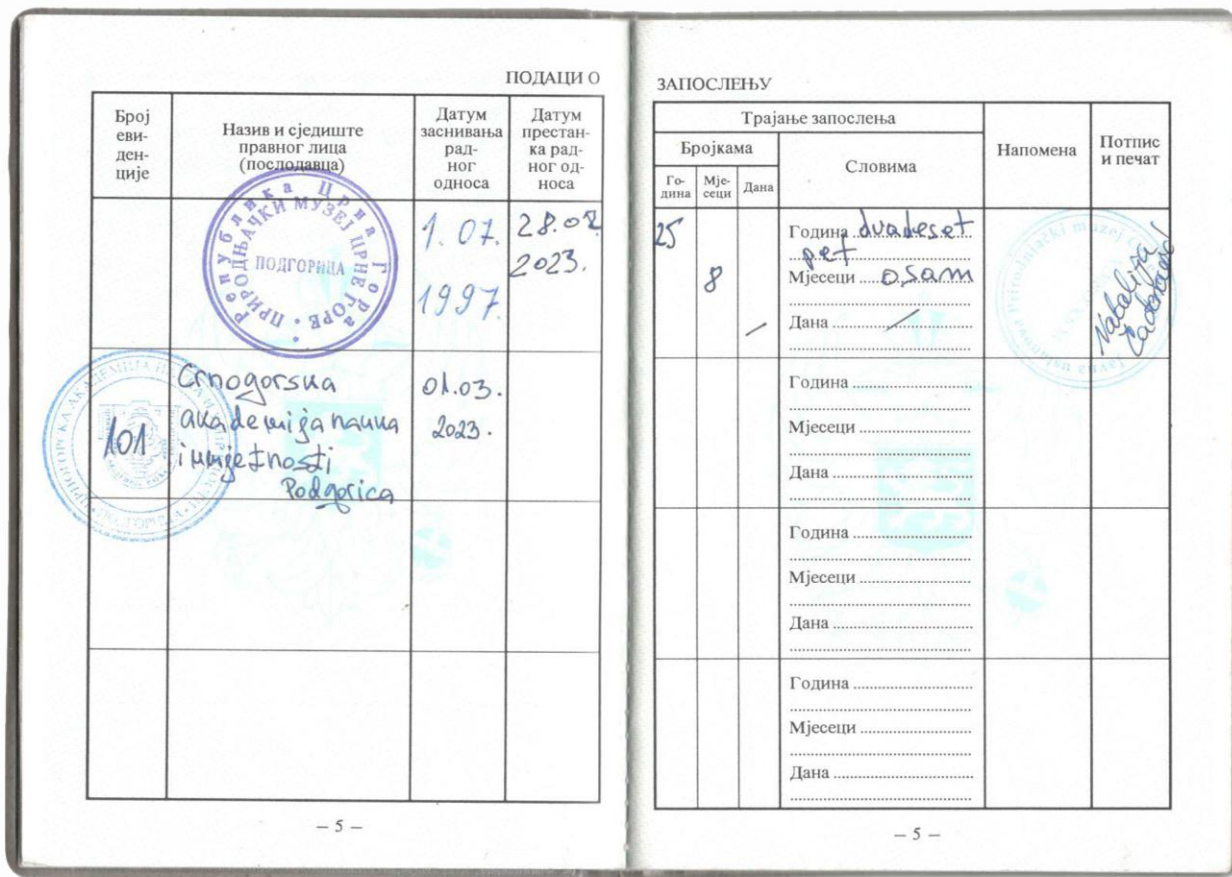 ПОДАЦИ О
Број
еви-
ден-
ције
Назив и сједиште
правног лица
(послодавца)
Датум
заснивања
рад-
ног
односа
Датум
престан-
ка рад-
ног од-
носа
Република Црна Гора
ПРИРОДЊАЧКИ МУЗЕЈ ЦРНЕ ГОРЕ
ПОДГОРИЦА
1.07.
1997.
28.02
2023.
101
Crnogorska
akademija nauka
i umjetnosti
Podgorica
01.03.
2023.
– 5 –
ЗАПОСЛЕЊУ
Трајање запослења
Бројкама
Го-
дина
Мје-
сеци
Дана
Словима
Напомена
Потпис
и печат
25
8
/
Година dvadeset
pet
Мјесеци osam
Дана /
Natalija
Година
Мјесеци
Дана
Година
Мјесеци
Дана
Година
Мјесеци
Дана
– 5 –